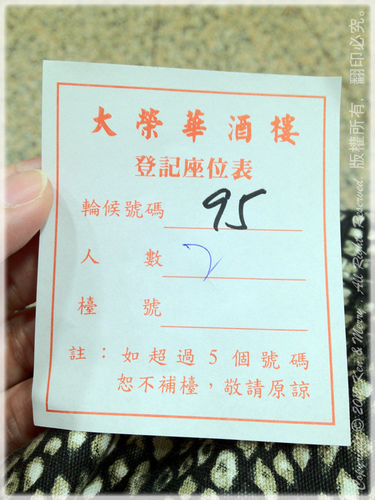 大榮華酒樓
登記座位表
輪候號碼 95
人數 2
檯號
註：如超過5個號碼
恕不補檯，敬請原諒
版權所有．翻印必究。